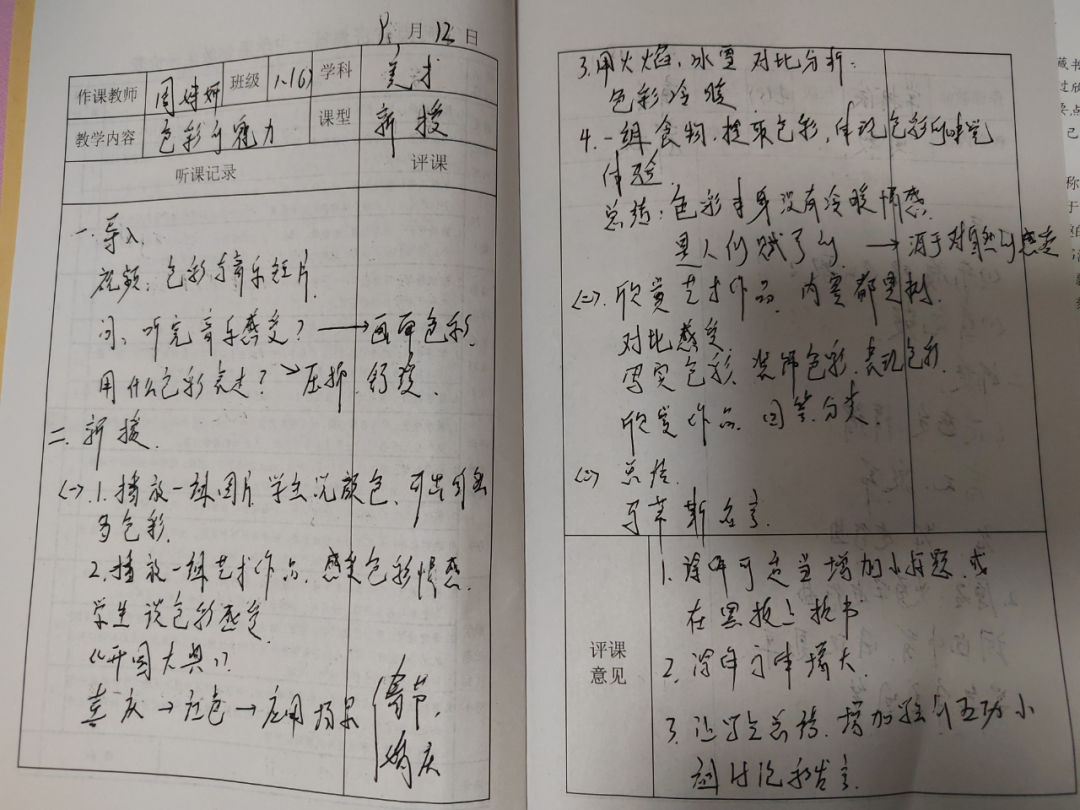 月 12 日
作课教师 周 妍 班级 1.16) 学科 美术
教学内容 色彩的魅力 课型 新授
听课记录 评课
一. 导入.
视频: 色彩与音乐短片.
问: 听完音乐感受? → 画面色彩.
用什么色彩表达? → 压抑. 舒缓.
二. 新授.
(一) 1. 播放一组图片. 学生说颜色.
多色彩.
2. 播放一组艺术作品. 感受色彩情感.
学生谈色彩感受
《开国大典》
喜庆 → 红色 → 应用场景 春节.
婚庆
3. 用火焰. 冰雪对比分析:
色彩冷暖
4. 一组食物. 提取色彩. 体现色彩的味觉
体验.
总结: 色彩本身没有冷暖情感.
是人们赋予的. → 源于对自然的感受
(二). 欣赏艺术作品. 内容都是树.
对比感受.
写实色彩. 装饰色彩. 表现色彩
欣赏作品. 回答分类.
(三) 总结.
马蒂斯名言.
评课意见
1. 课件可适当增加小标题. 或
在黑板上板书
2. 课件字体增大.
3. 让学生总结. 增加师生互动. 小
组讨论和发言.
藏书
过放
要点
已
称
于